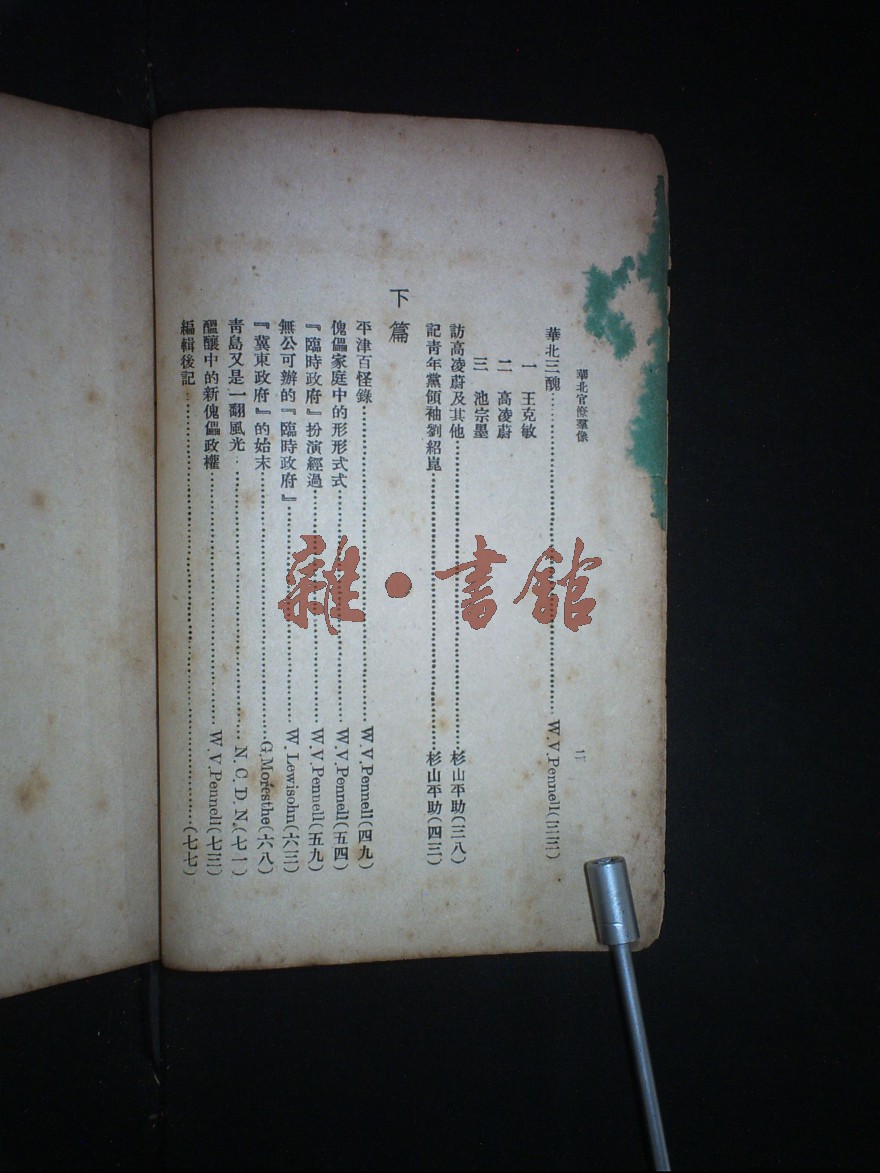 華北官僚羣像
二
華北三醜……W.V.Pennell(三三)
一 王克敏
二 高凌蔚
三 池宗墨
訪高凌蔚及其他……杉山平助(三八)
記青年黨領袖劉紹崑……杉山平助(四三)
下篇
平津百怪錄……W.V.Pennell(四九)
傀儡家庭中的形形式式……W.V.Pennell(五四)
『臨時政府』扮演經過……W.V.Pennell(五九)
無公可辦的『臨時政府』……W.Lewisohn(六三)
『冀東政府』的始末……G.Moresthe(六八)
靑島又是一翻風光……N.C.D.N.(七一)
醞釀中的新傀儡政權……W.V.Pennell(七三)
編輯後記……(七七)
雜·書館